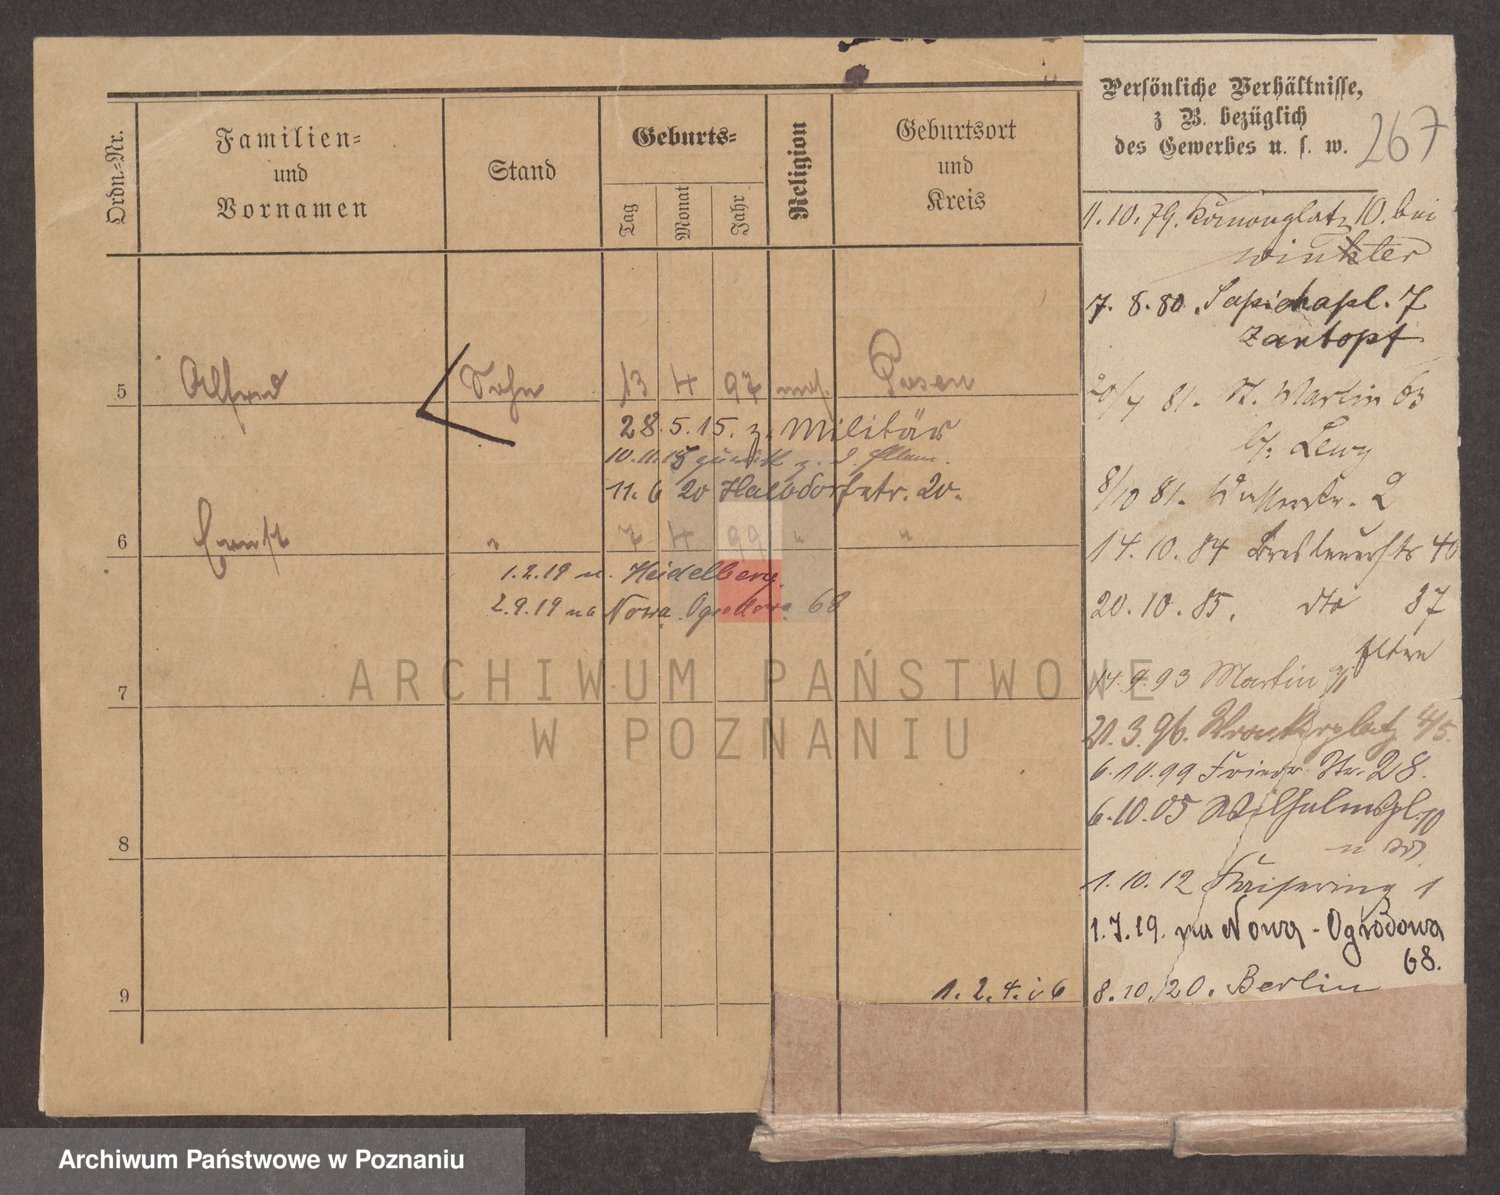 Ordn.-Nr.
Familien-
und
Vornamen
Stand
Geburts-
Tag
Monat
Jahr
Religion
Geburtsort
und
Kreis
Persönliche Verhältnisse,
z B. bezüglich
des Gewerbes u. s. w.
267
5 Alfred Sohn 13 4 97 mos. Posen
28.5.15. z. Militär
10.11.18 zurück z. d. Eltern.
11. 6 20 Halbdorfstr. 20.
6 Ernst " 7 4 99 " "
1.2.19 n. Heidelberg.
2.9.19 na Nowa Ogrodowa 68
7
8
9
1. 2. 4. i 6
11.10.79. 10. bei
Winkter
7. 8. 80. Sapiehapl. 7
Zantopf
20/4 81. St. Martin 63
b/. Lewy
8/10 81. Wasserstr. 2
14.10.84 40
20.10.85. dto 37
Eltern
14.9 93 Martin
21.3.96. Wronkerplatz 4/5.
6.10.99 Friedr. Str. 28.
6.10.05 Wilhelmspl. 10
1.10.12 Kaiserring 1
1.7.19. na Nowa-Ogrodowa
68.
8.10.20. Berlin
ARCHIWUM PAŃSTWOWE
W POZNANIU
Archiwum Państwowe w Poznaniu